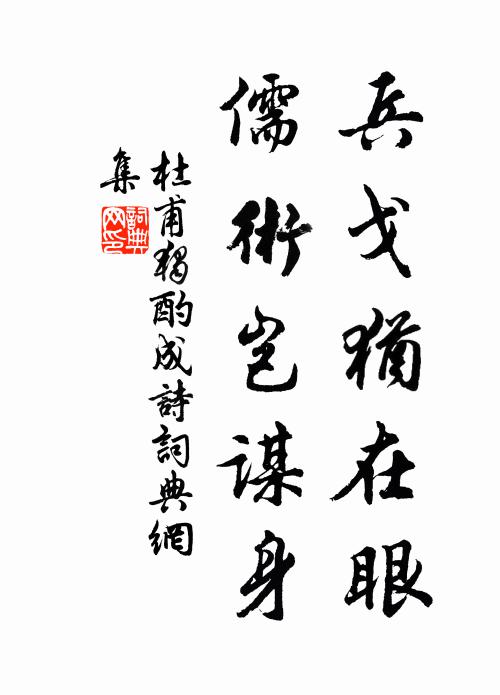 兵戈猶在眼
儒術豈謀身
杜甫獨酌成詩詞典網
集
詞典
网印